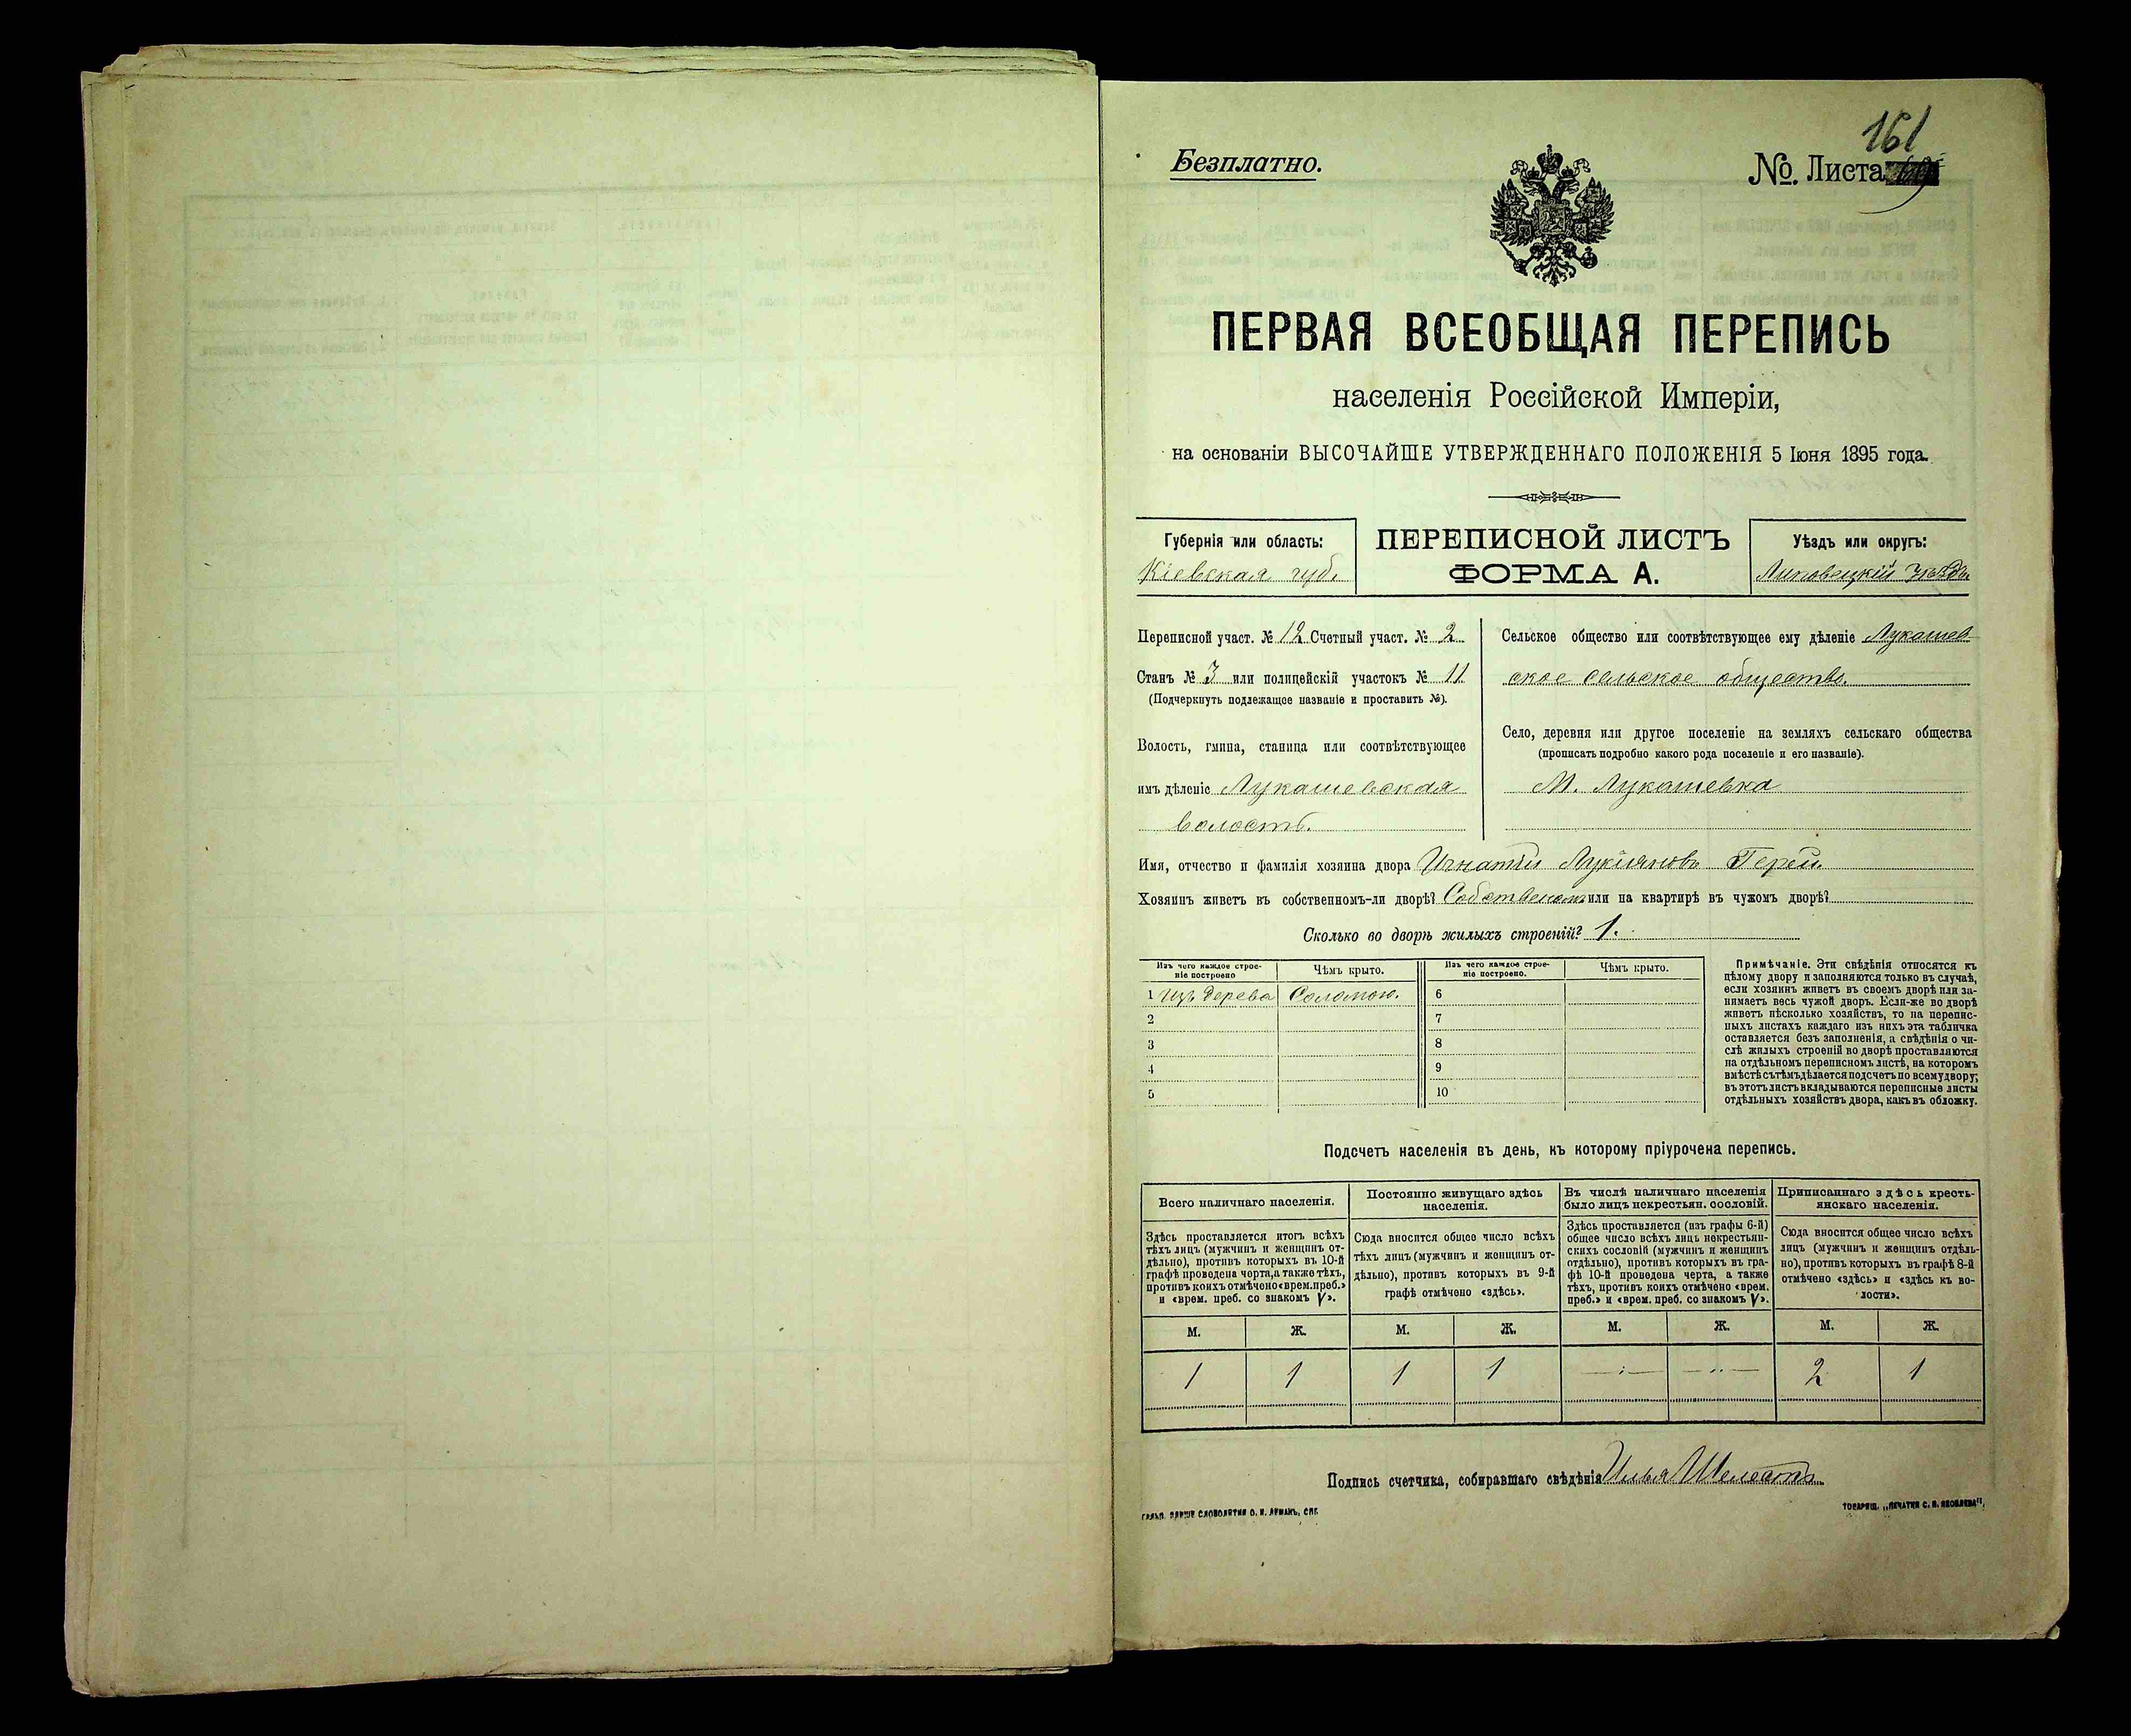 161
Безплатно.
№. Листа
ПЕРВАЯ ВСЕОБЩАЯ ПЕРЕПИСЬ
населенія Россійской Имперіи,
на основаніи ВЫСОЧАЙШЕ УТВЕРЖДЕННАГО ПОЛОЖЕНІЯ 5 Іюня 1895 года.
Губернія или область:
Кіевская губ.
ПЕРЕПИСНОЙ ЛИСТЪ
ФОРМА А.
Уѣздъ или округъ:
Липовецкій уѣздъ
Переписной участ. № 12 Счетный участ. № 2
Станъ № 3 или полицейскій участокъ № 11
(Подчеркнуть подлежащее названіе и проставить №).
Волость, гмина, станица или соотвѣтствующее
имъ дѣленіе Лукашевская
волость.
Сельское общество или соотвѣтствующее ему дѣленіе Лукашев
ское сельское общество.
Село, деревня или другое поселеніе на земляхъ сельскаго общества
(прописать подробно какого рода поселеніе и его названіе).
М. Лукашевка
Имя, отчество и фамилія хозяина двора Игнатій Лукіяновъ Герей.
Хозяинъ живетъ въ собственномъ-ли дворѣ? Собственомъ или на квартирѣ въ чужомъ дворѣ?
Сколько во дворѣ жилыхъ строеній? 1.
Изъ чего каждое строе-
ніе построено
Чѣмъ крыто.
Изъ чего каждое строе-
ніе построено.
Чѣмъ крыто.
1 Изъ дерева Соломою. 6
2 7
3 8
4 9
5 10
Примѣчаніе. Эти свѣдѣнія относятся къ
цѣлому двору и заполняются только въ случаѣ,
если хозяинъ живетъ въ своемъ дворѣ или за-
нимаетъ весь чужой дворъ. Если-же во дворѣ
живетъ нѣсколько хозяйствъ, то на перепис-
ныхъ листахъ каждаго изъ нихъ эта табличка
оставляется безъ заполненія, а свѣдѣнія о чи-
слѣ жилыхъ строеній во дворѣ проставляются
на отдѣльномъ переписномъ листѣ, на которомъ
вмѣстѣ съ тѣмъ дѣлается подсчетъ по всему двору;
въ этотъ листъ вкладываются переписные листы
отдѣльныхъ хозяйствъ двора, какъ въ обложку.
Подсчетъ населенія въ день, къ которому пріурочена перепись.
Всего наличнаго населенія.
Здѣсь проставляется итогъ всѣхъ
тѣхъ лицъ (мужчинъ и женщинъ от-
дѣльно), противъ которыхъ въ 10-й
графѣ проведена черта, а также тѣхъ,
противъ коихъ отмѣчено «врем. преб.»
и «врем. преб. со знакомъ V».
Постоянно живущаго здѣсь
населенія.
Сюда вносится общее число всѣхъ
тѣхъ лицъ (мужчинъ и женщинъ от-
дѣльно), противъ которыхъ въ 9-й
графѣ отмѣчено «здѣсь».
Въ числѣ наличнаго населенія
было лицъ некрестьян. сословій.
Здѣсь проставляется (изъ графы 6-й)
общее число всѣхъ лицъ некрестьян-
скихъ сословій (мужчинъ и женщинъ
отдѣльно), противъ которыхъ въ гра-
фѣ 10-й проведена черта, а также
тѣхъ, противъ коихъ отмѣчено «врем.
преб.» и «врем. преб. со знакомъ V».
Приписаннаго здѣсь кресть-
янскаго населенія.
Сюда вносится общее число всѣхъ
лицъ (мужчинъ и женщинъ отдѣль-
но), противъ которыхъ въ графѣ 8-й
отмѣчено «здѣсь» и «здѣсь къ во-
лости».
М. Ж. М. Ж. М. Ж. М. Ж.
1 1 1 1 — — 2 1
Подпись счетчика, собиравшаго свѣдѣнія Илья Шелестъ
ТОВАРИЩ. „ПЕЧАТНЯ С. П. ЯКОВЛЕВА".